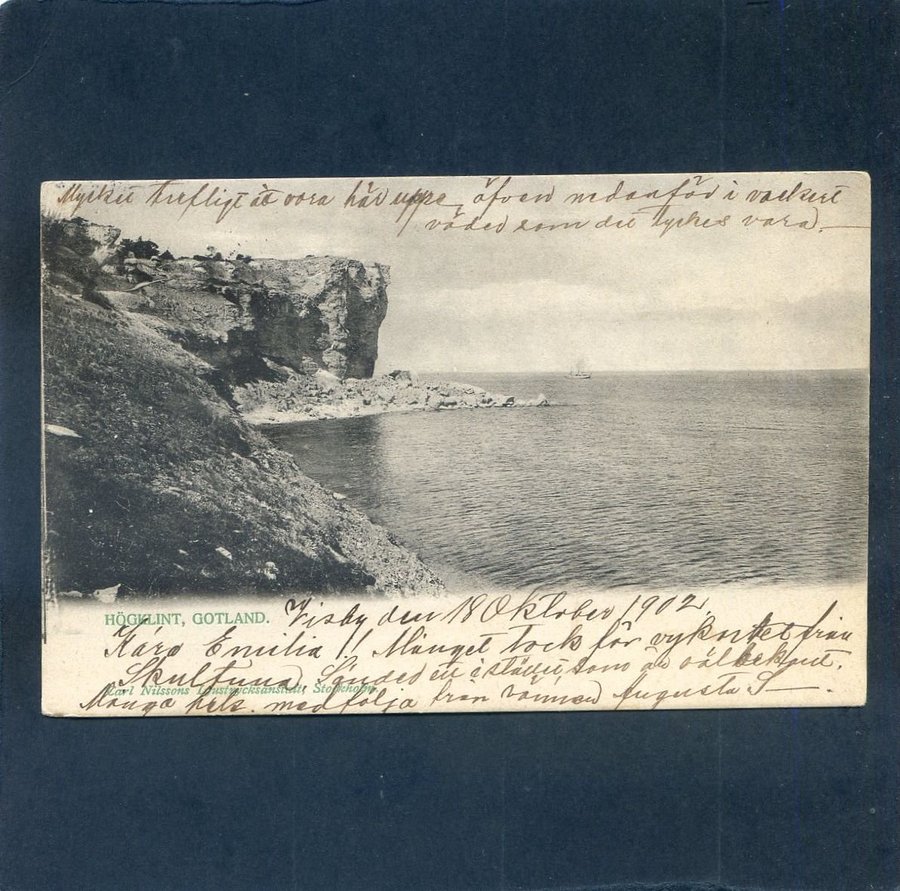 Mycket trefligt är vara här uppe äfven nedanför i vackert
väder som det tyckes vara.
HÖGKLINT, GOTLAND.
Visby den 18 Oktober 1902.
Kära Emilia!! Månget tack för vykortet från
Skultuna. Sänder ett i stället, som är välbekant.
Carl Nilssons Ljustrycksanstalt, Stockholm.
Många hels. medfölja från vännen Augusta S—.